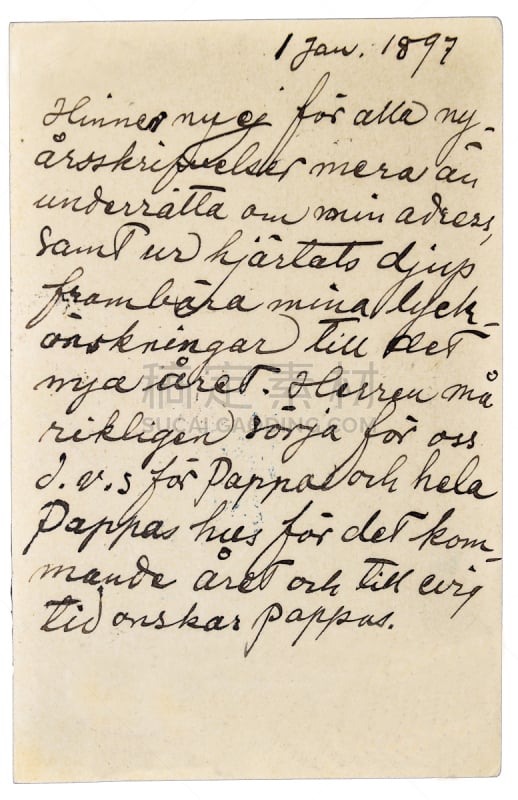 1 Jan. 1897
Hinner nu ej för alla ny-
årsskrifvelser mera än
underrätta om min adress,
samt ur hjärtats djup
frambära mina lyck-
önskningar till det
nya året. Herren må
rikligen sörja för oss
d.v.s för Pappa och hela
Pappas hus för det kom-
mande året och till evig
tid onskar Pappas.
稿定素材
SUCAI.GAODING.COM